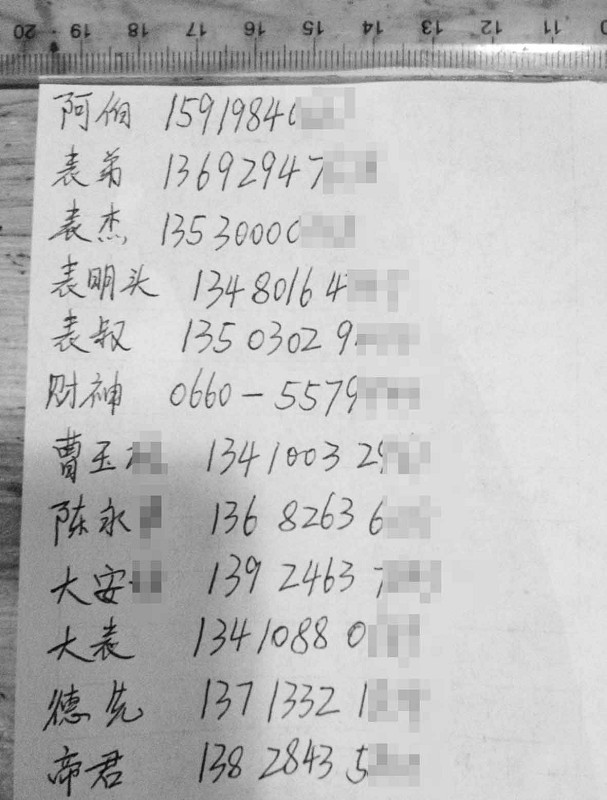 20 19 18 17 16 15 14 13 12 11
阿伯 15919840
表弟 13692947
表杰 13530000
表明头 13480164
表叔 13503029
财神 0660-5579
曹玉 134100329
陈永 13682636
大安 13924637
大表 13410880
德先 13713321
帝君 13828435